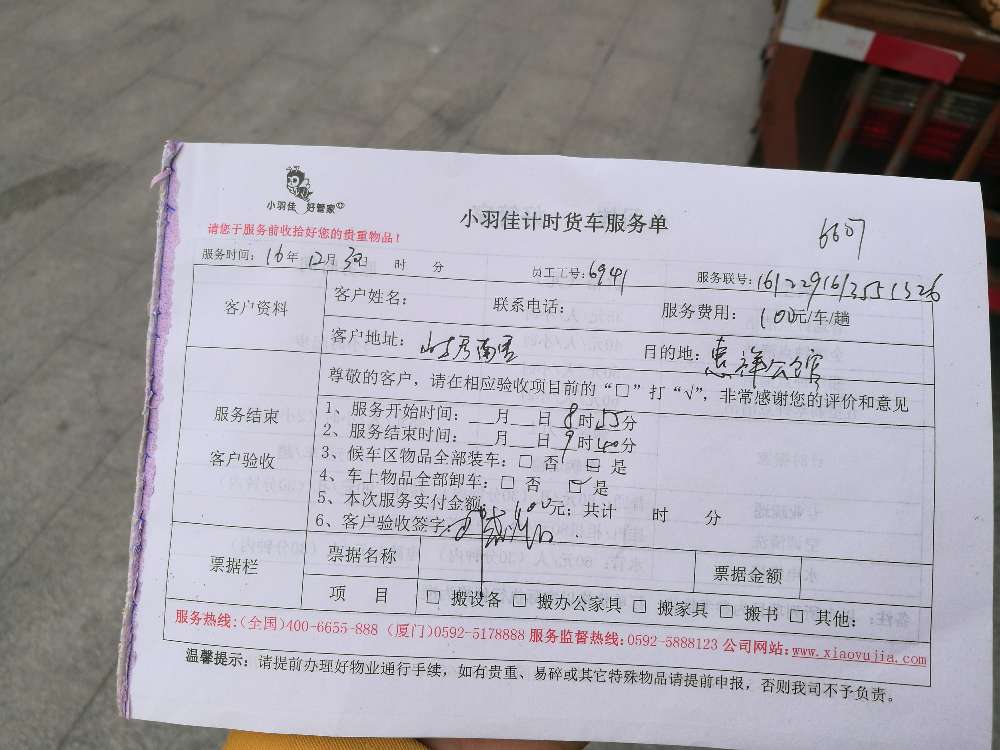 小羽佳 好管家
小羽佳计时货车服务单
6607
请您于服务前收拾好您的贵重物品！
服务时间: 16年 12月 30日 时 分 员工工号: 6941 服务联号:
客户资料 客户姓名: 联系电话: 服务费用: 100元/车/趟
客户地址: 目的地: 惠祥公馆
尊敬的客户，请在相应验收项目前的“□”打“√”，非常感谢您的评价和意见
服务结束
客户验收
1、服务开始时间: __月__日 8时55分
2、服务结束时间: __月__日 9时40分
3、候车区物品全部装车: □ 否 □ 是
4、车上物品全部卸车: □ 否 ☑ 是
5、本次服务实付金额: 100元; 共计 时 分
6、客户验收签字:
票据栏 票据名称 票据金额
项 目 □ 搬设备 □ 搬办公家具 □ 搬家具 □ 搬书 □ 其他:
服务热线:(全国)400-6655-888 (厦门)0592-5178888 服务监督热线:0592-5888123 公司网站:www.xiaoyujia.com
温馨提示: 请提前办理好物业通行手续，如有贵重、易碎或其它特殊物品请提前申报，否则我司不予负责。